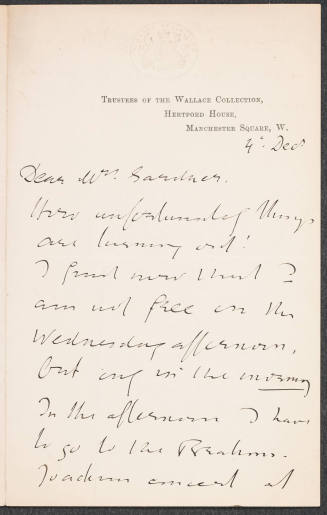 TRUSTEES OF THE WALLACE COLLECTION,
HERTFORD HOUSE,
MANCHESTER SQUARE, W.
4th Decr
Dear Mrs. Gardner.
How unfortunately things
are turning out!
I find now that I
am not free on the
Wednesday afternoon,
but only in the morning
In the afternoon I have
to go to the Brahms-
Joachim concert at